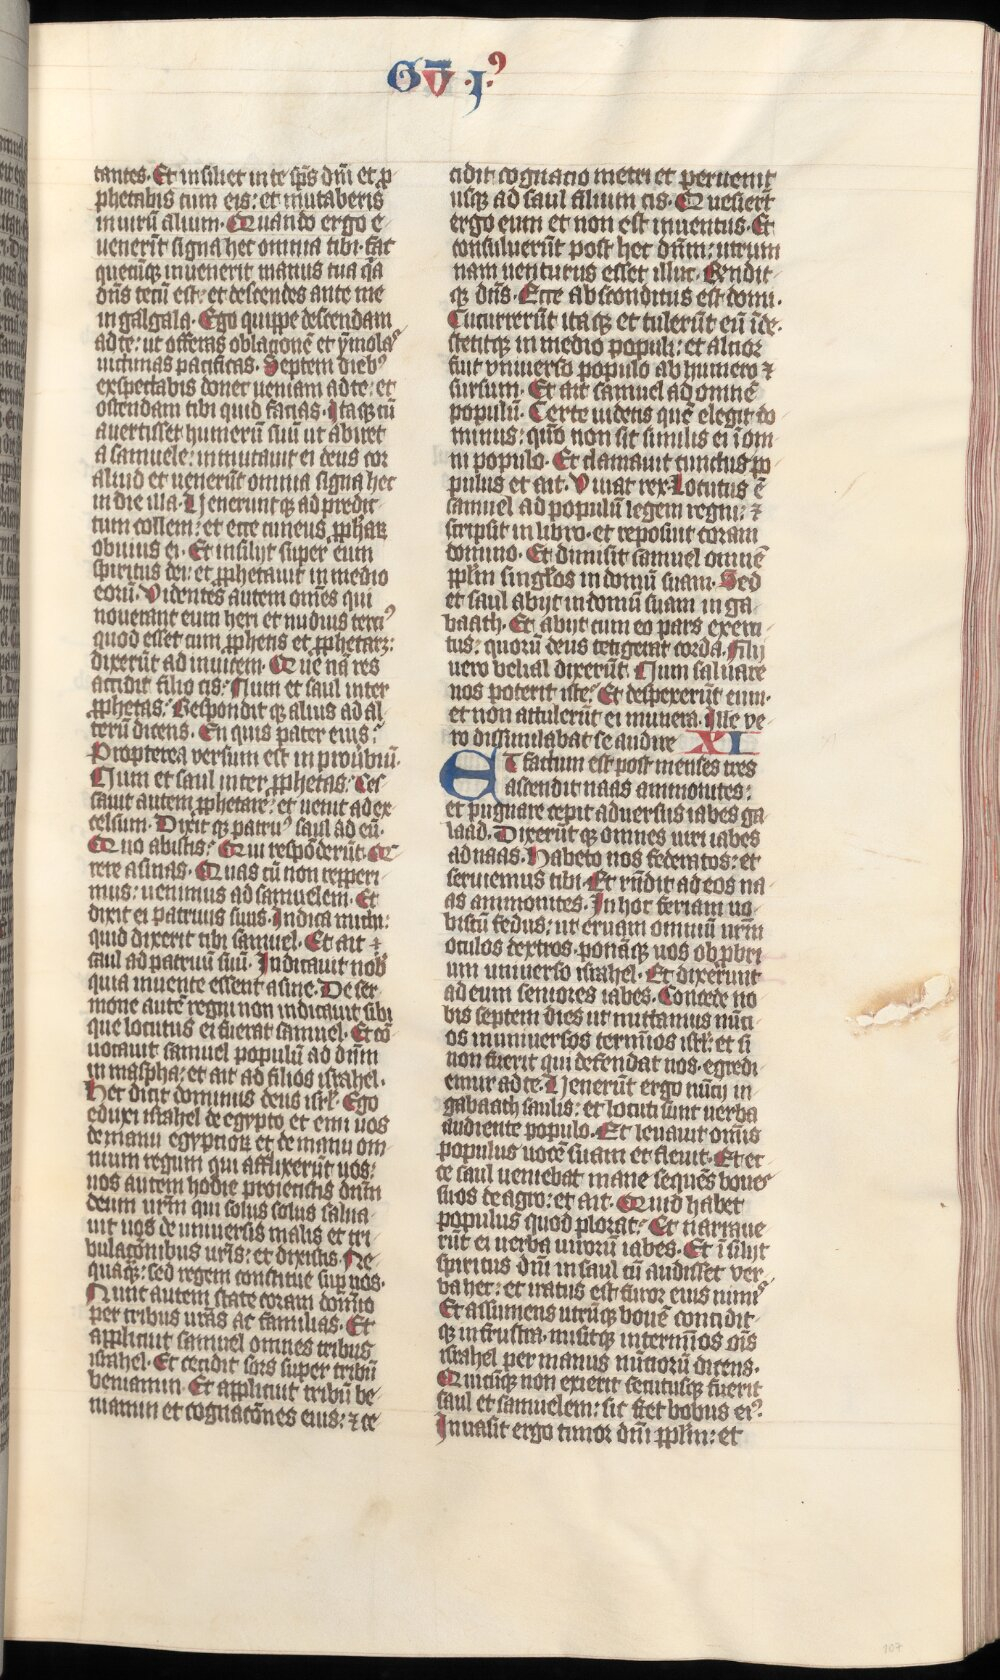 GV̅ .I.ꝰ
tantes. Et insiliet in te sp̅s dn̅i et p̱
phetabis cum eis: et mutaberis
in virū alium. Quando ergo e
uenerīt signa hec omnia tibi. fac
quecūq̱ inuenerit manus tua q̄a
dn̄s tecū est: et descendes ante me
in galgala. Ego quippe descendam
ad te: ut offeras oblac̄onē et ymolaˢ
uictimas pacificas. Septem diebꝰ
expectabis donec ueniam ad te: et
ostendam tibi quid facias. Itaq̱ cū
auertisset humerū suū ut abiret
a samuele: inmutauit ei deus cor
aliud et uenerūt omnia signa hec
in die illa. Ueneruntq̱ ad predic
tum collem: et ecce cuneus p̱phaꝝ
obuius ei. Et insilijt super eum
spiritus dei: et p̱phetauit in medio
eorū. Videntes autem om̄es qui
nouerant eum heri et nudius terciꝰ
quod esset cum p̱phetis et p̱phetarꝫ:
dixerūt ad inuicem. Que nā res
accidit filio cis. Num et saul inter
p̱phetas. Respondit q̱ alius ad al
terū dicens. En quis pater eius.
Propterea versum est in prou̅biū.
Num et saul inter p̱phetas. Ces
sauit autem p̱phetare: et uenit ad ex
celsum. Dixit q̱ patruꝰ saul ad eū.
Quo abistis. Qui respōderūt. Q
rere asinas. Quas cū non repperi
mus: uenimus ad samuelem. Et
dixit ei patruus suus. Indica michi:
quid dixerit tibi samuel. Et ait
saul ad patruū suū. Indicauit nob̄
quia inuente essent asine. De ser
mone autē regni non indicauit sibi
que locutus ei fuerat samuel. Et cō
uocauit samuel populū ad dn̄m
in maspha: et ait ad filios israhel.
Hec dicit dominus deus isrl̄. Ego
eduxi israhel de egypto et erui uos
de manu egyptioꝝ et de manu om
nium regum qui afflixerūt uos:
uos autem hodie proiecistis dn̄m
deum ur̄m qui solus solus salua
uit uos de uniuersis malis et tri
bulac̄onibus ur̄is: et dixistis. Ne
quaq̱: sed regem constitue sup̱ uos.
Nunc autem state coram domīo
per tribus ur̄as ac familias. Et
applicuit samuel omnes tribus
israhel. Et cecidit sors super tribū
beniamin. Et applicuit tribū be
niamin et cognac̄ones eius: ⁊ ce
cidit cognacio metri et peruenit
usq̱ ad saul filium cis. Quesierūt
ergo eum et non est inuentus. Et
consuluerūt post hec dn̄m: utrum
nam uenturus esset illuc. Rn̄dit
q̱ dn̄s. Ecce absconditus est domi.
Cucurrerūt itaq̱ et tulerūt eū īde.
stetitq̱ in medio populi: et altior
fuit vniuerso populo ab humero ⁊
sursum. Et ait samuel ad omnē
populū. Certe uidetis quē elegit do
minus: qm̄ non sit similis ei ī om
ni populo. Et clamauit cunctus po
pulus et ait. Viuat rex. Locutus ē
samuel ad populū legem regni: ⁊
scripsit in libro. et reposuit coram
domino. Et dimisit samuel omnē
pp̄lm singl̄os in domū suam. Sed
et saul abijt in domū suam in ga
baath. Et abijt cum eo pars exerci
tus: quorū deus tetigerat corda. Filij
uero belial dixerūt. Num saluare
nos poterit iste. Et despexerūt eum.
et non attulerūt ei munera. Ille ve
ro dissimulabat se audire XI
ET factum est post menses tres
ascendit naas ammonites:
et pugnare cepit aduersus iabes ga
laad. Dixerūt q̱ omnes uiri iabes
ad naas. Habeto nos federatos: et
seruiemus tibi. Et rn̄dit ad eos na
as ammonites. In hoc feriam uo
biscū fedus: ut eruam omniū ur̄m
oculos dextros. ponāq̱ uos obp̱bri
um uniuerso israhel. Et dixerunt
ad eum seniores iabes. Concede no
bis septem dies ut mittamus nūci
os in uniuersos term̄ios isrl̄: et si
non fuerit qui defendat nos. egredi
emur ad te. Uenerūt ergo nūcij in
gabaath saulis: et locuti sunt uerba
audiente populo. Et leuauit om̄is
populus uocē suam et fleuit. Et ec
ce saul ueniebat mane sequēs boues
suos de agro: et ait. Quid habet
populus quod plorat. Et narraue
rūt ei uerba uirorū iabes. Et īsilijt
spiritus dn̄i in saul cū audisset ver
ba hec: et iratus est furor eius nimiˢ
Et assumens utrūq̱ bouē concidit
q̱ in frustra. misitq̱ in term̄ios om̄s
israhel per manus nūciorū dicens.
Quicūq̱ non exierit secutusq̱ fuerit
saul et samuelem: sic fiet bobus eiꝰ.
Inuasit ergo timor dn̄i pp̄lm: et
107